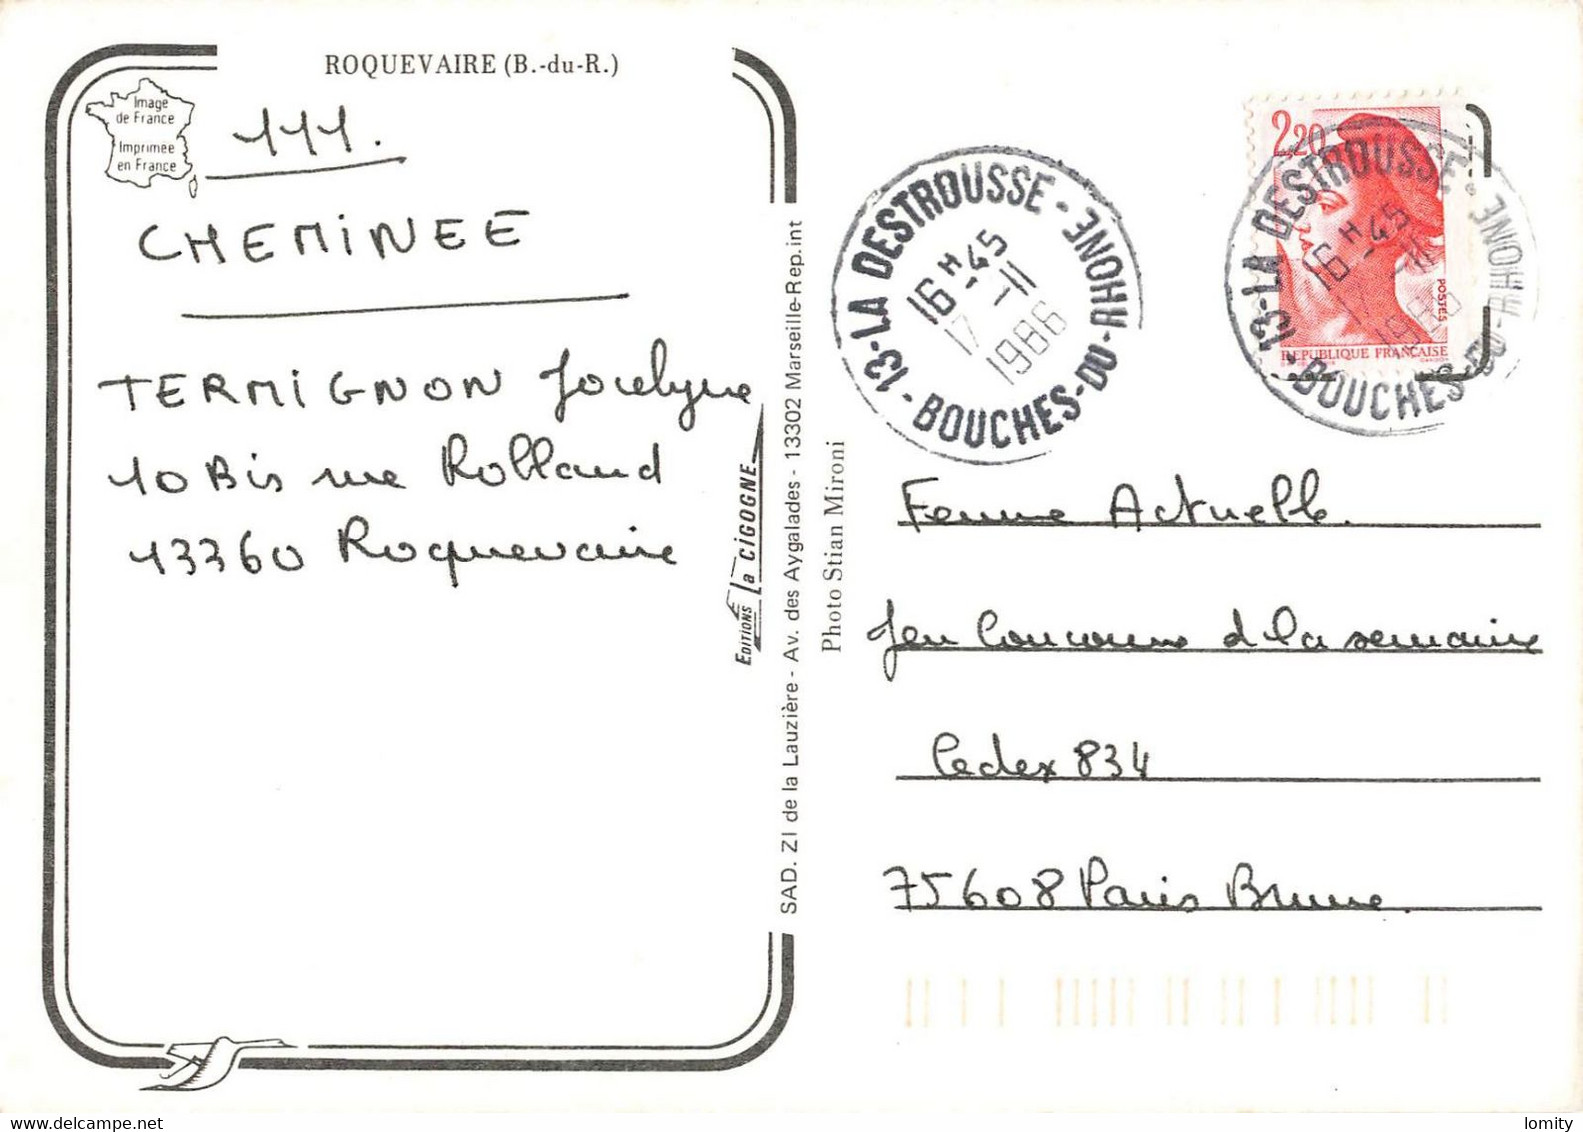 ROQUEVAIRE (B.-du-R.)
Image
de France
Imprimée
en France
111.
CHEMINEE
TERMIGNON Jocelyne
10 Bis rue Rolland
13360 Roquevaire
EDITIONS La CIGOGNE
SAD. ZI de la Lauzière - Av. des Aygalades - 13302 Marseille-Rep.int
Photo Stian Mironi
13-LA DESTROUSSE - BOUCHES-DU-RHONE
16 H 45
17 - 11
1986
2,20
POSTES
REPUBLIQUE FRANCAISE
13-LA DESTROUSSE - BOUCHES-DU-RHONE
16 H 45
17 - 11
1986
Femme Actuelle
Jeu Concours d la semaine
Cedex 834
75608 Paris Brune
lomity